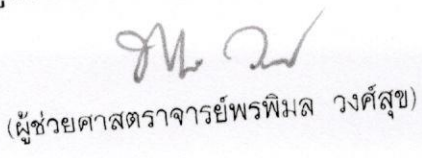 (ผู้ช่วยศาสตราจารย์พรพิมล วงศ์สุข)